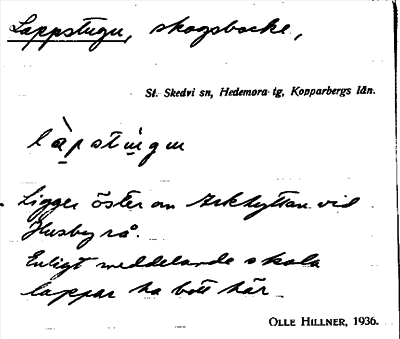 Lappstugu, skogsbacke,
St. Skedvi sn, Hedemora tg, Kopparbergs län.
làpstúgu
Ligger öster om Arkhyttan vid
Husby rå.
Enligt meddelande skola
lappar ha bott här.
OLLE HILLNER, 1936.